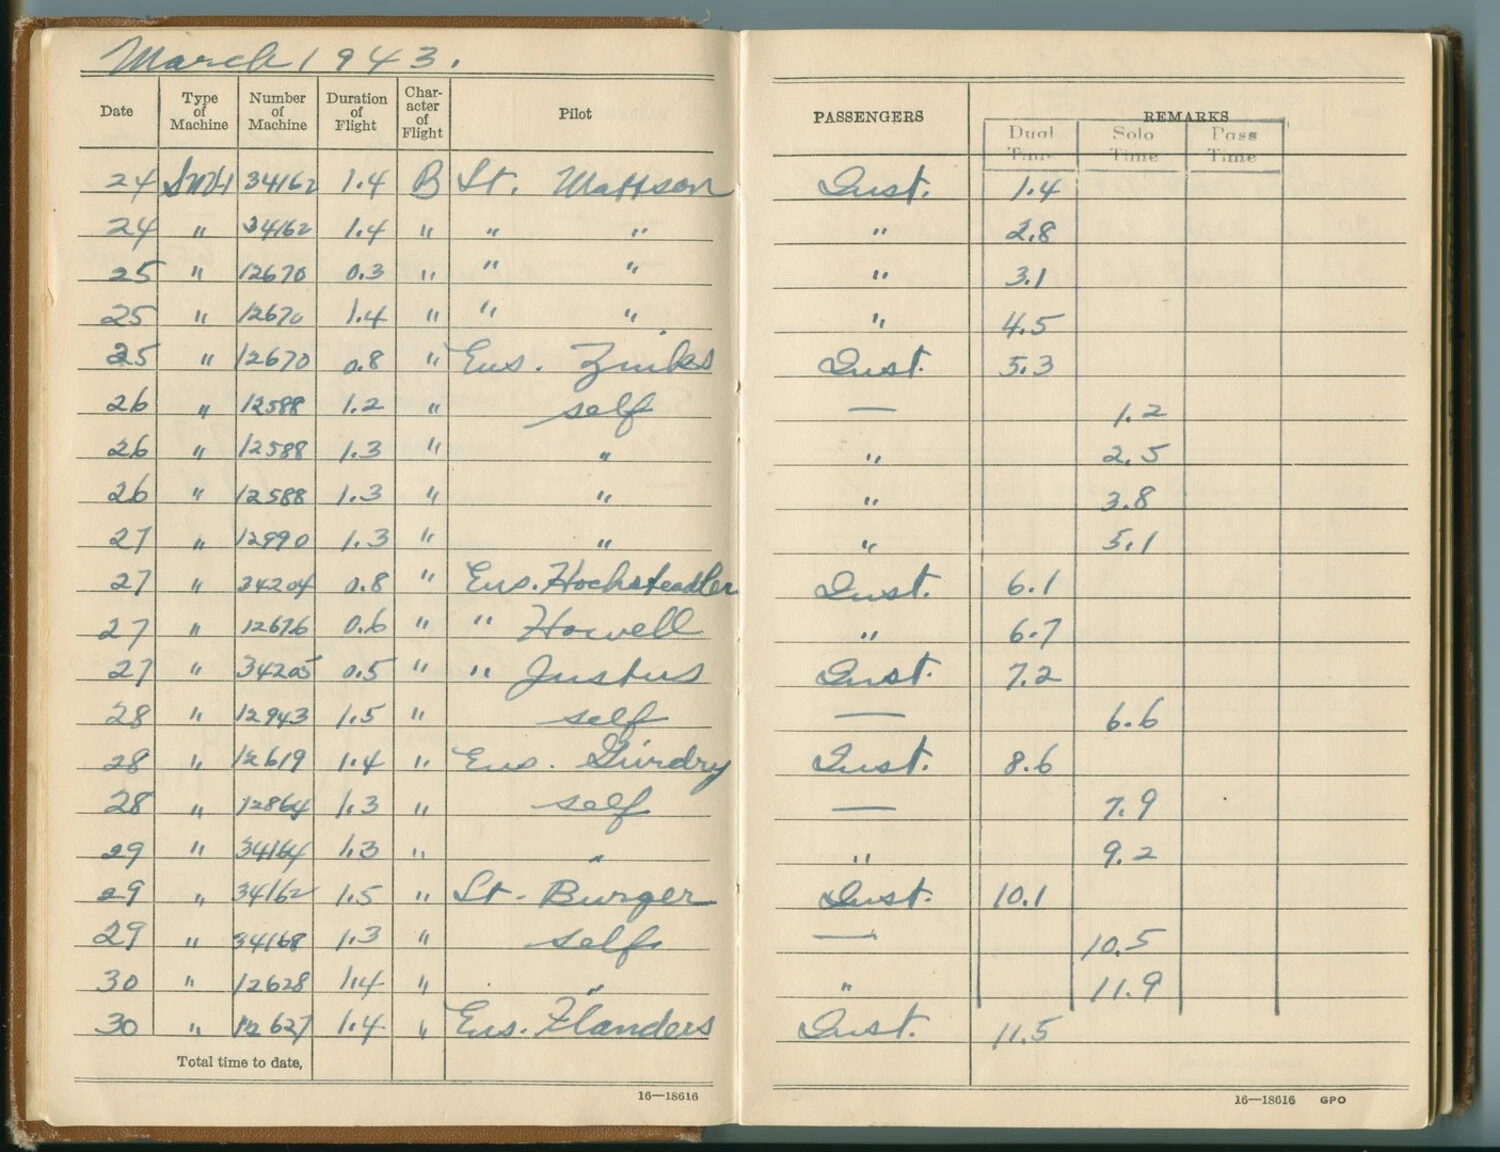 March 1943.
Date Type of Machine Number of Machine Duration of Flight Char-acter of Flight Pilot PASSENGERS REMARKS
Dual Time Solo Time Pass Time
24 SNV-1 34162 1.4 B Lt. Mattson Inst. 1.4
24 " 34162 1.4 " " " " 2.8
25 " 12670 0.3 " " " " 3.1
25 " 12670 1.4 " " " " 4.5
25 " 12670 0.8 " Ens. Zinks Inst. 5.3
26 " 12588 1.2 " self — 1.2
26 " 12588 1.3 " " " 2.5
26 " 12588 1.3 " " " 3.8
27 " 12990 1.3 " " " 5.1
27 " 34204 0.8 " Ens. Hochsteadler Inst. 6.1
27 " 12676 0.6 " " Howell " 6.7
27 " 34205 0.5 " " Justus Inst. 7.2
28 " 12943 1.5 " self — 6.6
28 " 12619 1.4 " Ens. Guirdry Inst. 8.6
28 " 12864 1.3 " self — 7.9
29 " 34164 1.3 " " " 9.2
29 " 34162 1.5 " Lt. Burger Inst. 10.1
29 " 34168 1.3 " self — 10.5
30 " 12628 1.4 " " " 11.9
30 " 12627 1.4 " Ens. Flanders Inst. 11.5
Total time to date,
16—18616 16—18616 GPO